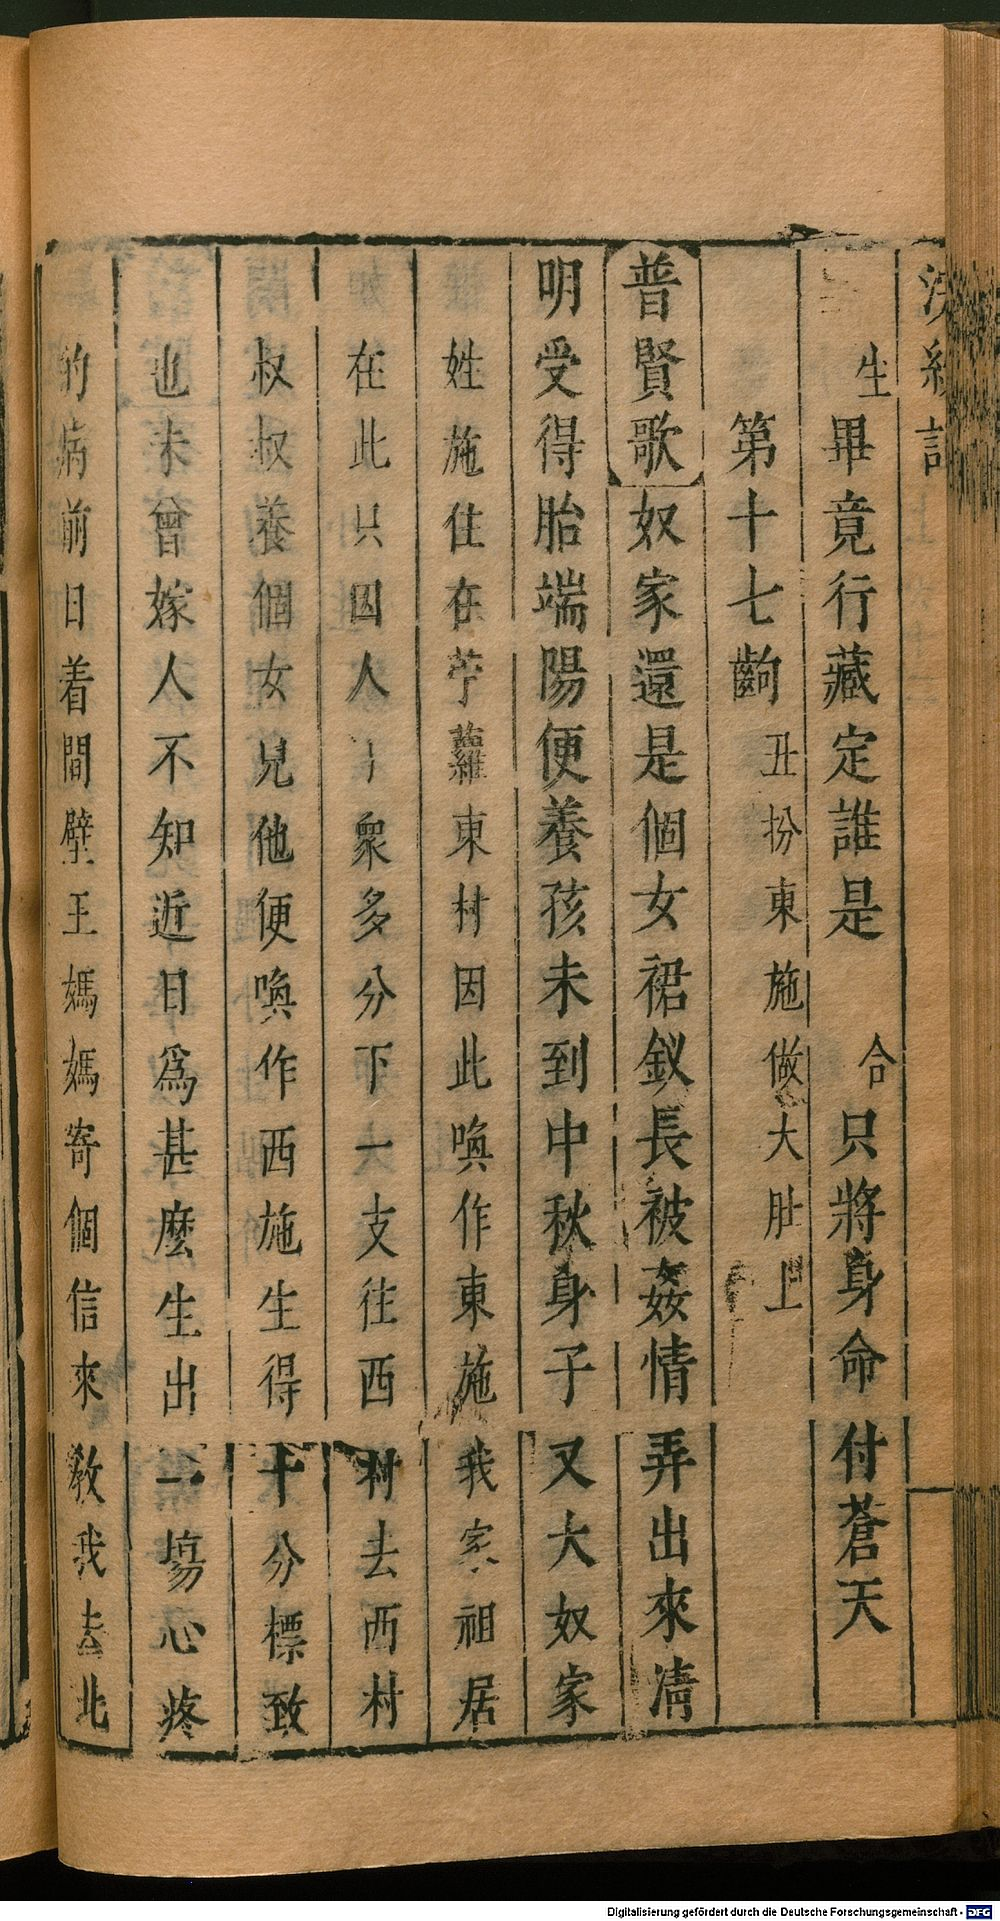 浣紗記
生畢竟行藏定誰是　合只將身命付蒼天
第十七齣　丑扮東施做大肚上
普賢歌奴家還是個女裙釵長被姦情弄出來清
明受得胎端陽便養孩未到中秋身子又大奴家
姓施住在苧蘿東村因此喚作東施我家祖居
在此只因人丁衆多分下一支往西村去西村
叔叔養個女兒他便喚作西施生得十分標致
也未曾嫁人不知近日爲甚麽生出一塲心疼
的病前日着間壁王媽媽寄個信來教我去北
Digitalisierung gefördert durch die Deutsche Forschungsgemeinschaft - DFG